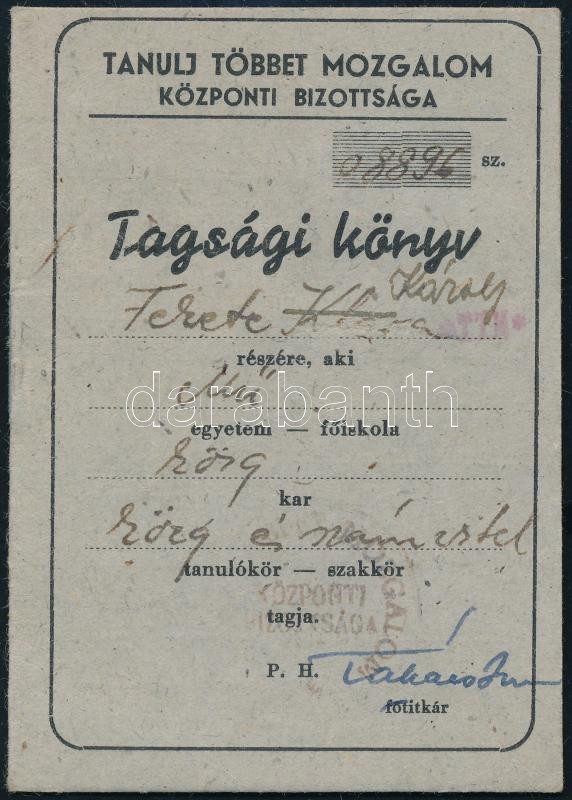 TANULJ TÖBBET MOZGALOM
KÖZPONTI BIZOTTSÁGA
08896 sz.
Tagsági könyv
Károly
Fekete Klára
részére, aki
darabanth
egyetem — főiskola
közg
kar
közg és számvitel
tanulókör — szakkör
KÖZPONTI
BIZOTTSÁGA
MOZGALOM
tagja.
P. H. Takács
főtitkár